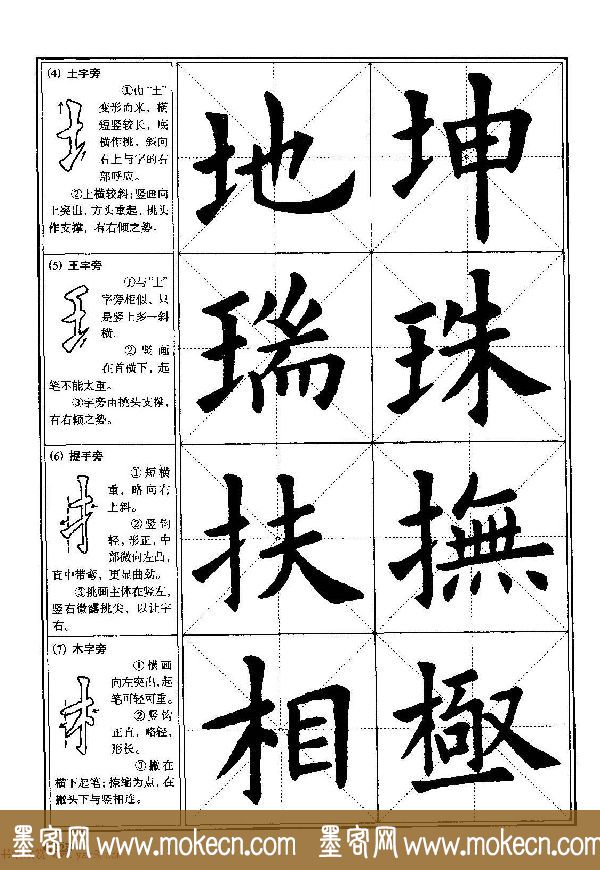 (4) 土字旁
①由“土”
变形而来，横
短竖较长，底
横作挑，斜向
右上与字的右
部呼应。
②上横较斜；竖画向
上突出，方头重起，挑头
作支撑，有右倾之势。
地 坤
(5) 王字旁
①与“土”
字旁相似，只
是竖上多一斜
横。
②竖画
在首横下，起
笔不能太重。
③字旁由挑头支撑，
有右倾之势。
瑞 珠
(6) 提手旁
①短横
重，略向右
上斜。
②竖钩
轻，形正，中
部微向左凸，
直中带弯，更显曲劲。
③挑画主体在竖左，
竖右微露挑尖，以让字
右。
扶 撫
(7) 木字旁
①横画
向左突出，起
笔可轻可重。
②竖钩
正直，略轻，
形长。
③撇在
横下起笔；捺缩为点，在
撇头下与竖相连。
相 極
墨客网 www.mokecn.com 墨客网 www.mokecn.com